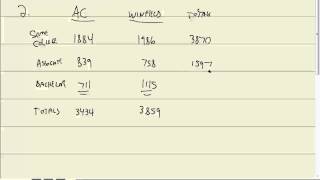 2. AC WINFIELD TOTAL
Some College 1884 1986 3870
Associate 839 758 1597
Bachelor 711 1115
Totals 3434 3859